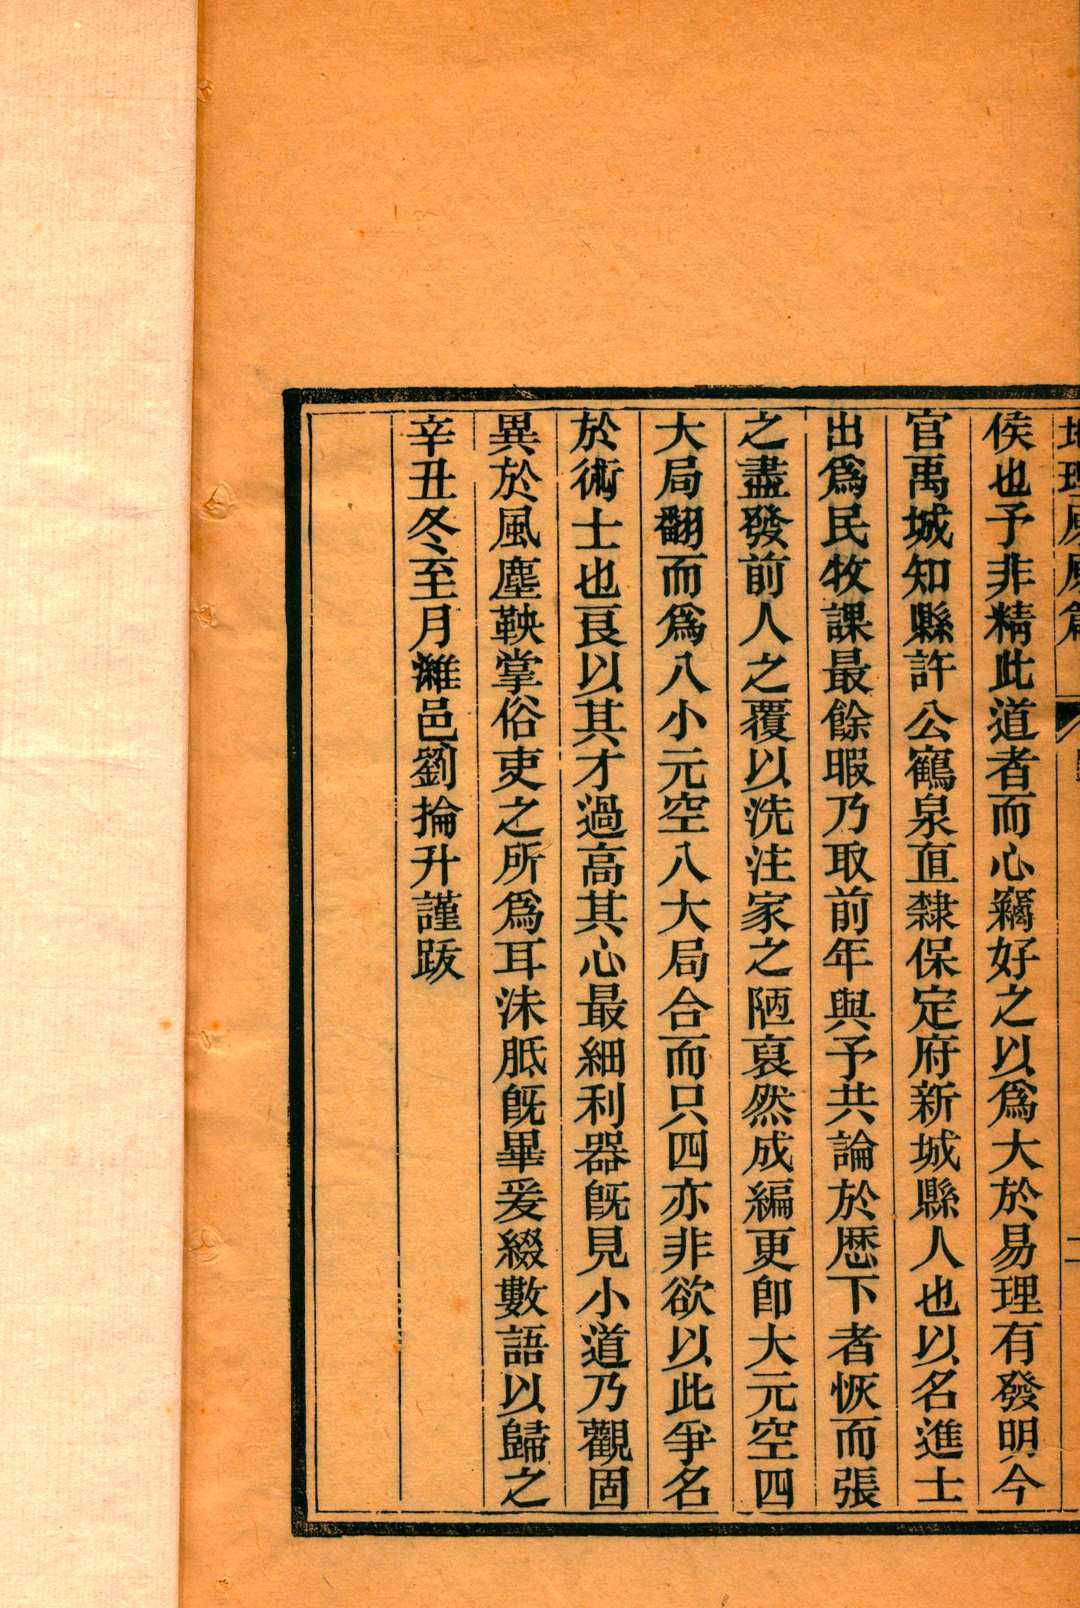 俟也予非精此道者而心竊好之以爲大於易理有發明今
官禹城知縣許公鶴泉直隸保定府新城縣人也以名進士
出爲民牧課最餘暇乃取前年與予共論於歷下者恢而張
之盡發前人之覆以洗注家之陋裒然成編更卽大元空四
大局翻而爲八小元空八大局合而只四亦非欲以此爭名
於術士也良以其才過高其心最細利器旣見小道乃觀固
異於風塵鞅掌俗吏之所爲耳洙胝旣畢爰綴數語以歸之
辛丑冬至月濰邑劉掄升謹跋